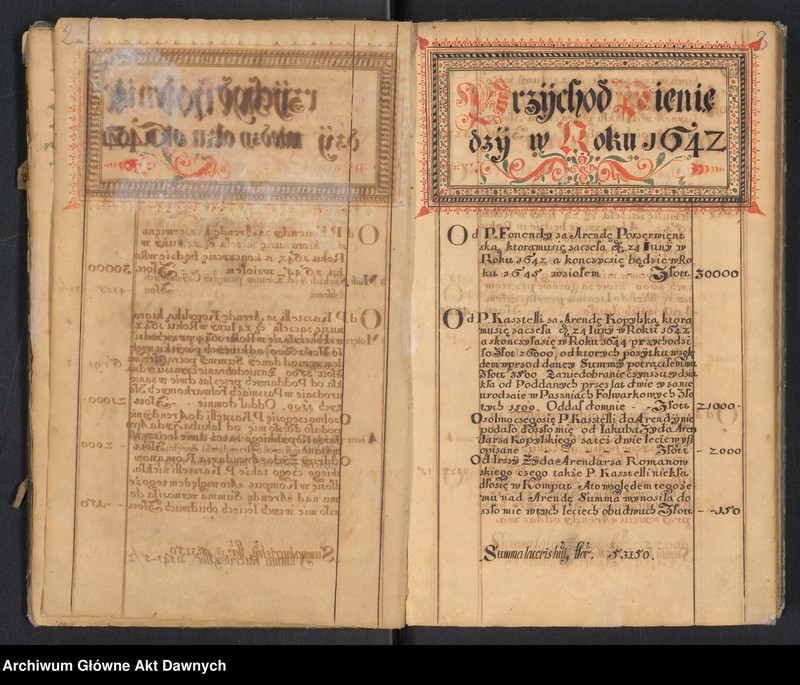 2
3
Przychod Pienię
dzy w Roku 1642
Od P. Fonendy za Arendę Posserwient
ską, ktora mu się zaczęła 24 Iuny w
Roku 1642 a konczyc się będzie w Ro
ku 1645 wziołem Złott 30000
Od P. Kasztelli za Arendę Kopylską, ktora
mu się zaczęła 24 Iuny w Roku 1642
a skonczyła się w Roku 1644 przychodzi
ło Złot 26000, od ktorych pożytku wzglę
dem wprzod daney Summy potrąciłem mu
Złott 3500 Za niedobranie czynszu y dzia
kła od Poddanych przez lat dwie za nie
urodzaie w Paszniach Folwarkowych Zło
tych 1500. Oddał do mnie - - Złott 21000 -
Osobno czego się P. Kasztelli do Arendy nie
podało doszło mię od Iakuba Zyda Aren
darza Kopylskiego za też dwie lecie wysz
opisane - - - - Złott - 2000
Od Irszy Zyda Arendarza Romanow
skiego czego także P. Kasztelli niekła
dło się w Komput. A to względem tego że
mu nad Arendę Summa wynosiła do
szło mie w tych leciech obudwuch Złott - -150
Summa lateris huius flor. 53150.
Archiwum Główne Akt Dawnych